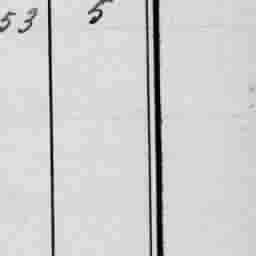 53 5